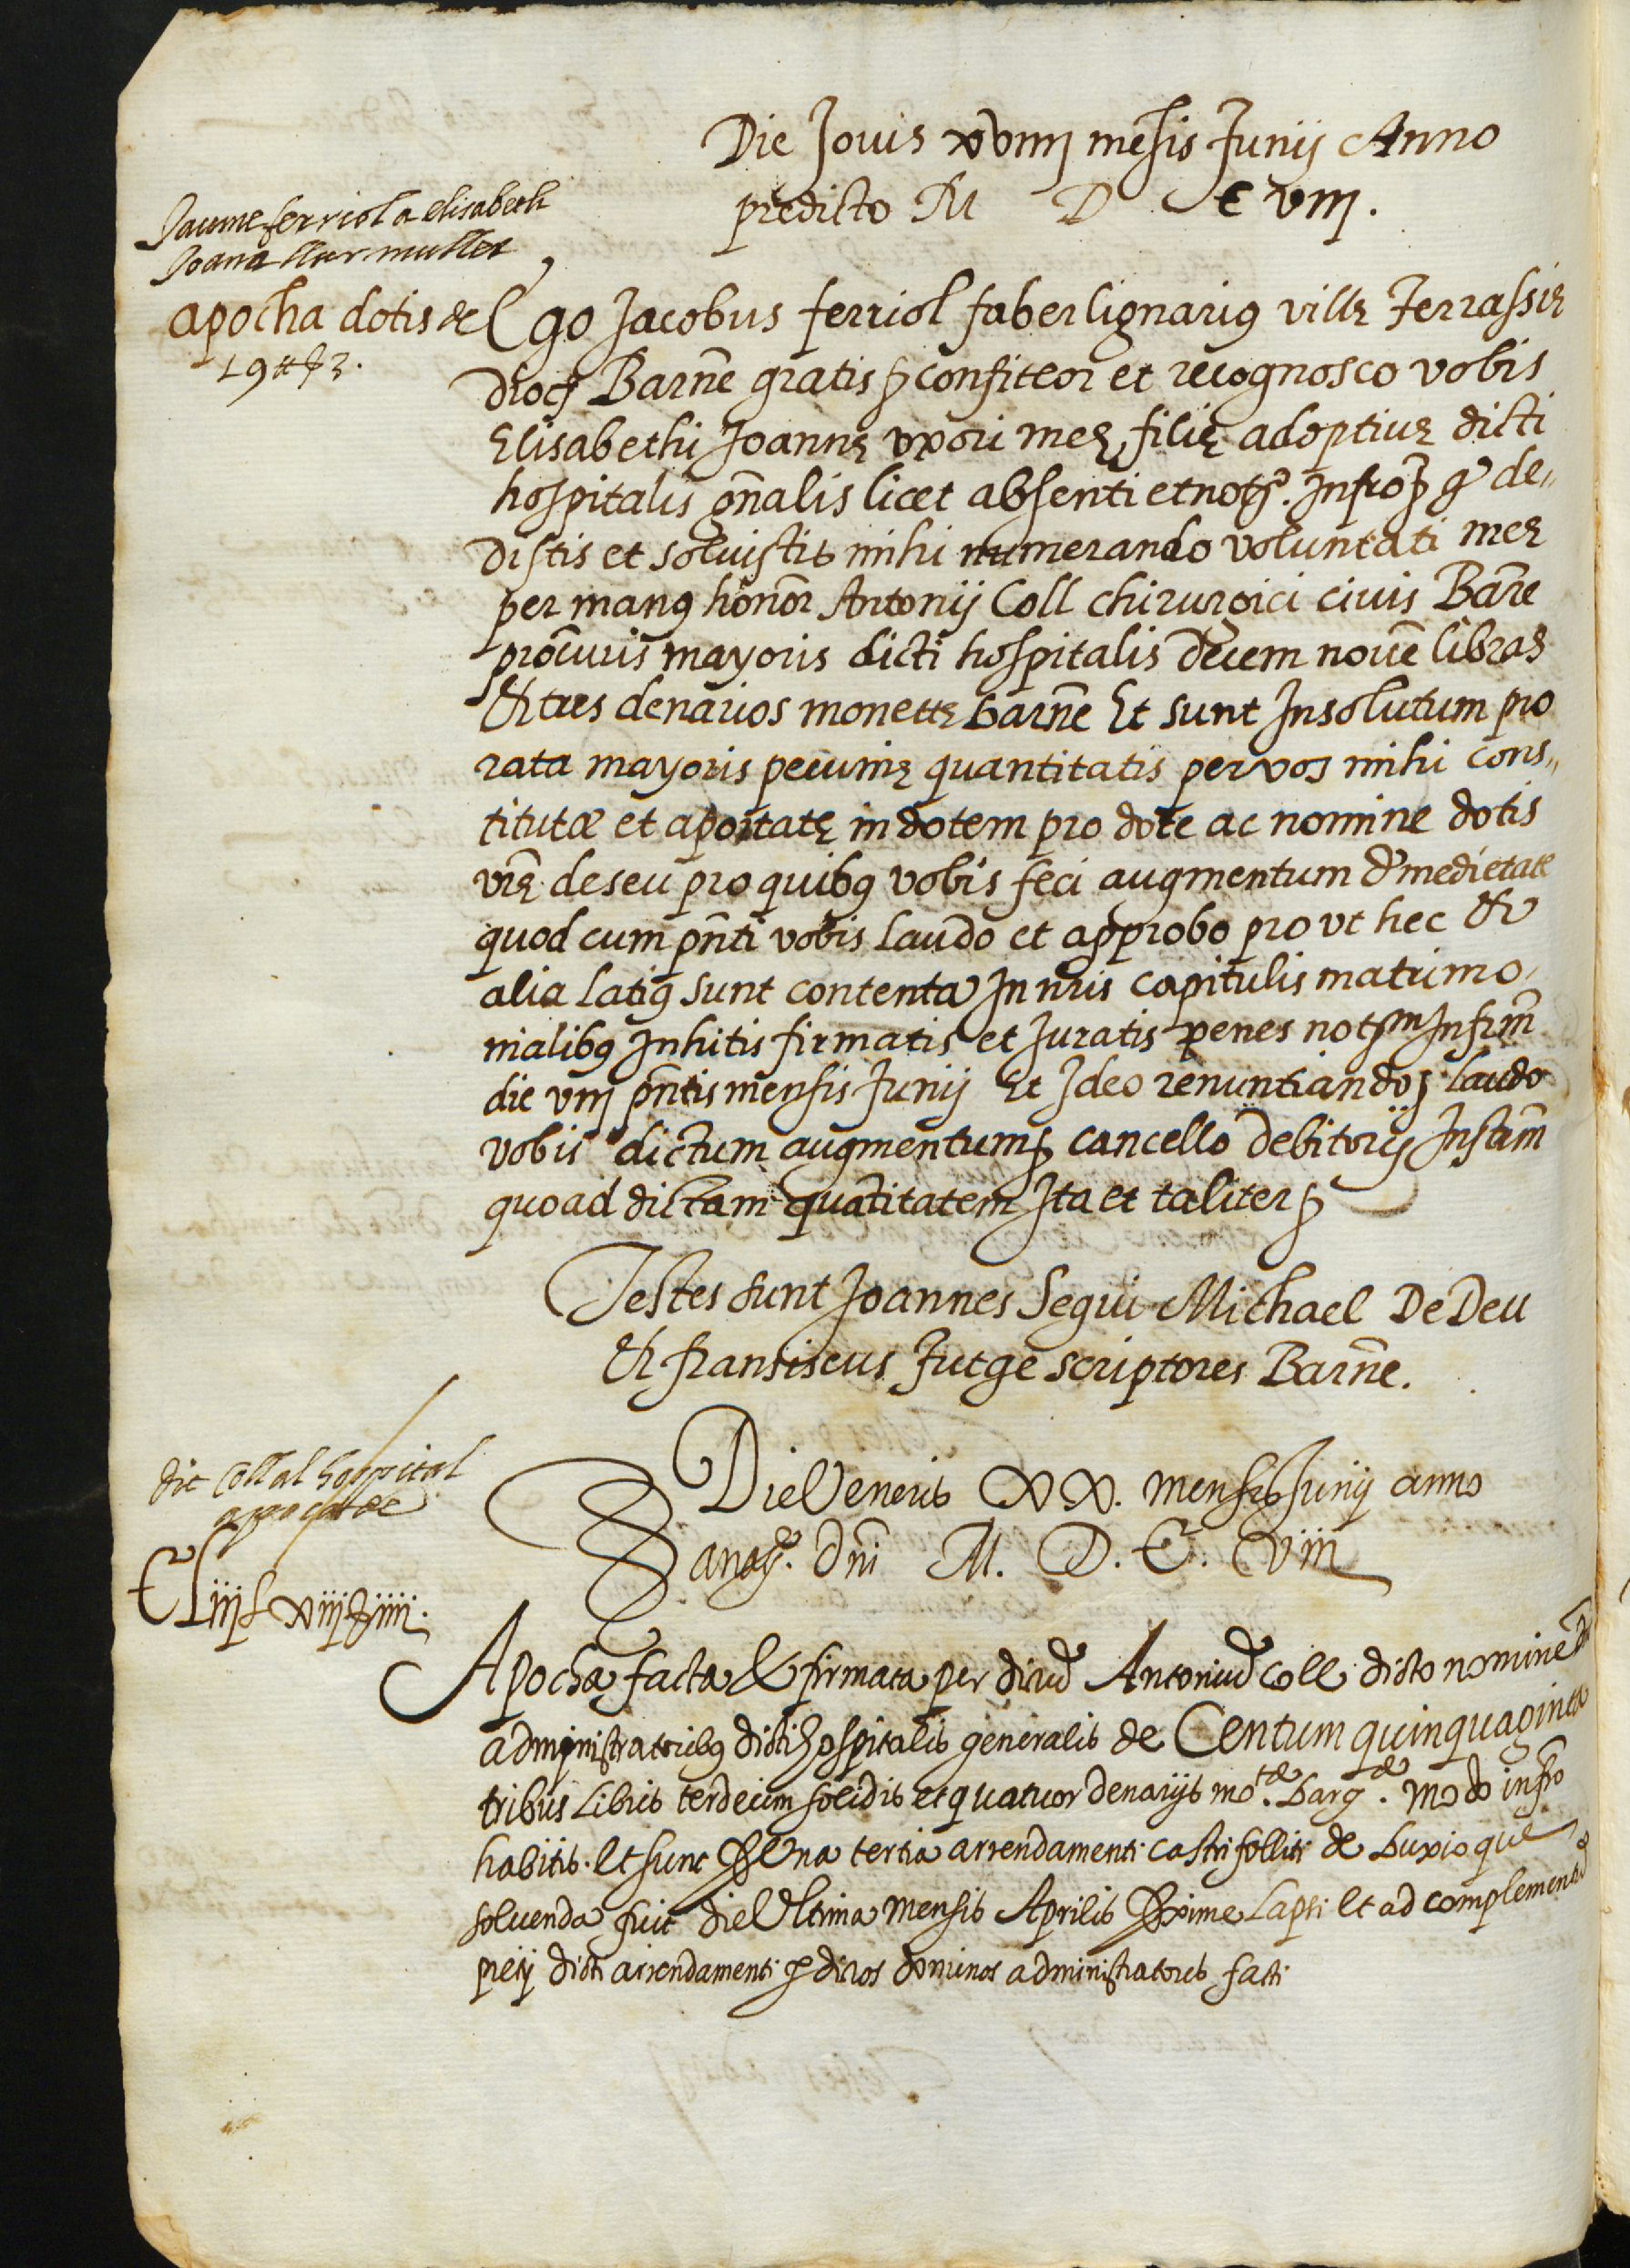 Die Jouis xviiij mēsis Junij Anno
predicto M D C viiij.
Jaume ferriol a elisabeth
Joana llur muller
apocha dotis de
19 ħ 3.
Ego Jacobus ferriol faber lignariꝰ villę Terrassię
dioc̨ Barn̄e gratis ꝫ confiteor et recognosco vobis
Elisabethi Joannę vxori meę, filię adoptiuę dicti
hospitalis gn̄alis licet absenti et notͦ. Infroꝫ ꝙ de„
distis et soluistis mihi numerando voluntati meę
per manꝰ honōr Antonij Coll chirurgici ciuis Barn̄e
procūris mayoris dicti hospitalis decem nouē libras
Et tres denarios monetę barn̄e Et sunt Insolutum pro
rata mayoris pecunię quantitatis per vos mihi cons„
titutæ et aportatę in dotem pro dote ac nomine dotis
vr̄ę de seu pro quibꝰ vobis feci augmentum de medietate
quod cum pn̄ti vobis laudo et approbo pro vt hec Et
alia latiꝰ sunt contenta In nr̄is capitulis matrimo,
nialibꝰ Inhitis firmatis et Juratis penes notͫ Infrm̄
die viij pn̄tis mensis Junij Et Ideo renuntiandoꝫ laudo
vobis dictum augmentumꝫ cancello debitorij Instm̄
quo ad dictam quātitatem Ita et taliter ꝫ
Testes sunt Joannes Segui Michael De Deu
Et fransiscus Jutge scriptores Barn̄e.
Die Veneris XX. mensis Junij anno
a naᵗᵉ. Dn̄i M. D. C. Viiii
dit Coll al hospital
apoca de
CLiij ł xiij ẞ iiij.
Apocha facta & firmata per dictū Antoniū Coll dicto nomine
administratoribꝰ dicti hospitalis generalis de Centum quinquaginta
tribus Libris terdecim solidis et quatuor denarijs moᵗᵉ. barᵉ. modo infro
habitis. Et sunt ꝓ Vna tertia arrendamenti castri folliti de buxio que
soluenda fuit die Vltima mensis Aprilis ꝓxime Lapsi Et ad complementū
precij dicti arrendamenti ꝑ dictos dominos administratores facti